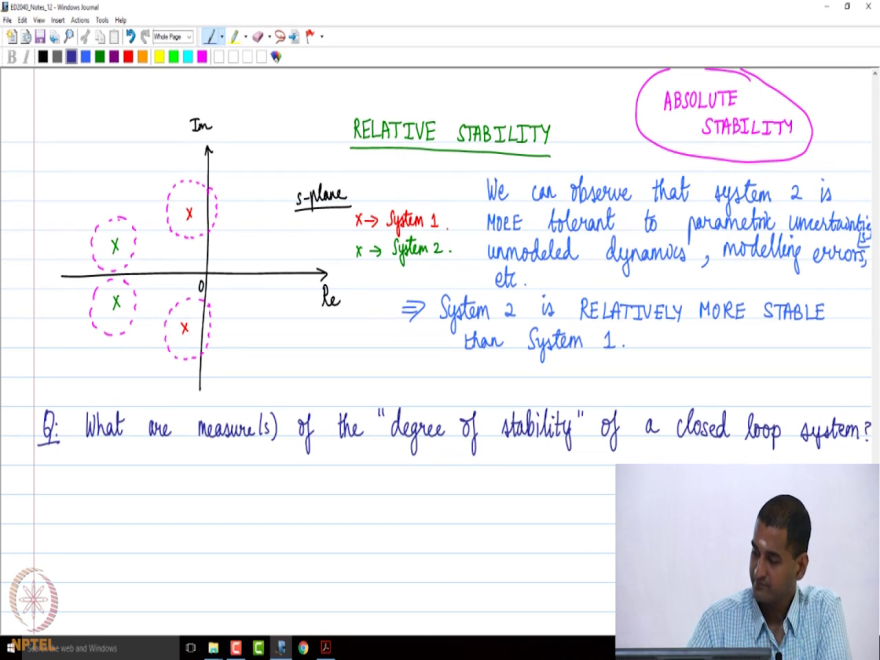 ED2040_Notes_12 - Windows Journal
File Edit View Insert Actions Tools Help
Whole Page
B I
ABSOLUTE
STABILITY
RELATIVE STABILITY
Im
s-plane
x → System 1.
x → System 2.
0
Re
We can observe that system 2 is
MORE tolerant to parametric uncertainties
unmodeled dynamics, modelling errors,
etc.
⇒ System 2 is RELATIVELY MORE STABLE
than System 1.
Q: What are measure(s) of the "degree of stability" of a closed loop system?
NPTEL
the web and Windows